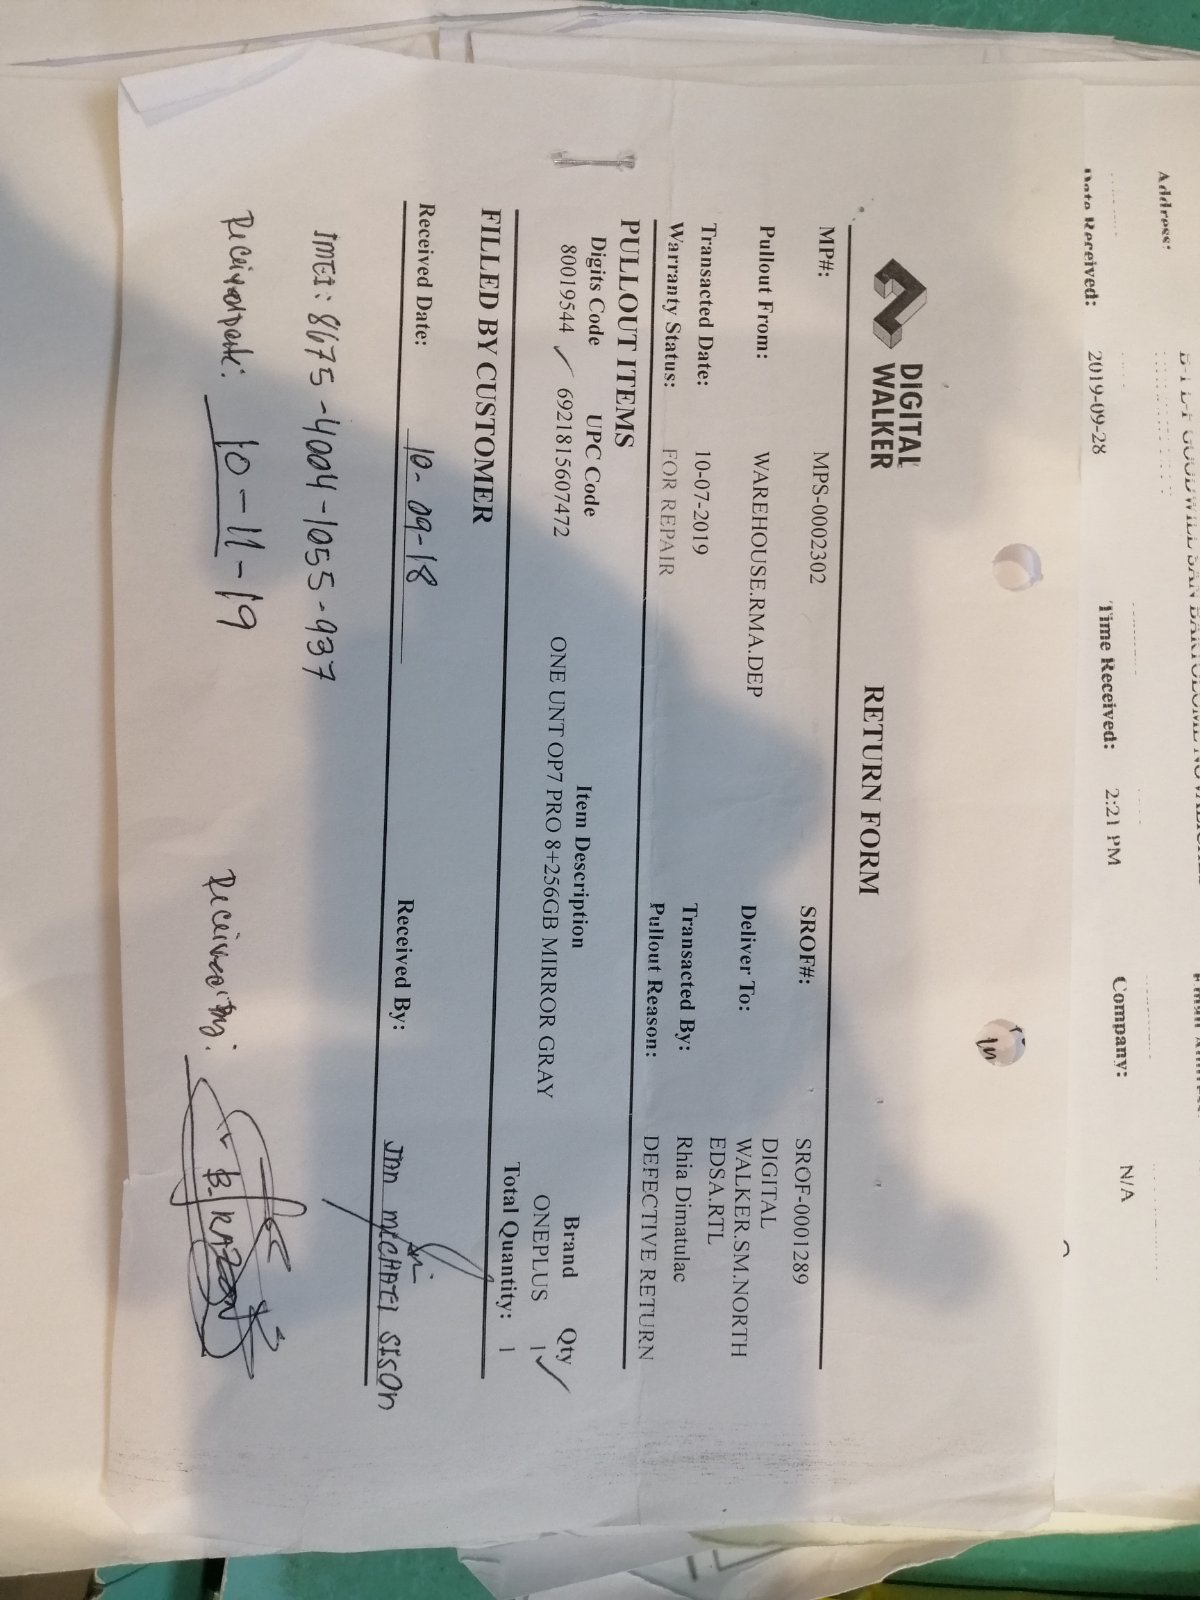 Address:
Date Received: 2019-09-28 Time Received: 2:21 PM Company: N/A
DIGITAL
WALKER
RETURN FORM
MP#: MPS-0002302 SROF#: SROF-0001289
Pullout From: WAREHOUSE.RMA.DEP Deliver To: DIGITAL
WALKER.SM.NORTH
EDSA.RTL
Transacted Date: 10-07-2019 Transacted By: Rhia Dimatulac
Warranty Status: FOR REPAIR Pullout Reason: DEFECTIVE RETURN
PULLOUT ITEMS
Digits Code UPC Code Item Description Brand Qty
80019544 6921815607472 ONE UNT OP7 PRO 8+256GB MIRROR GRAY ONEPLUS 1
Total Quantity: 1
FILLED BY CUSTOMER
Received Date: 10-09-18 Received By: JAN MICHAEL SISON
IMEI: 8675-4004-1055-937
10-11-19